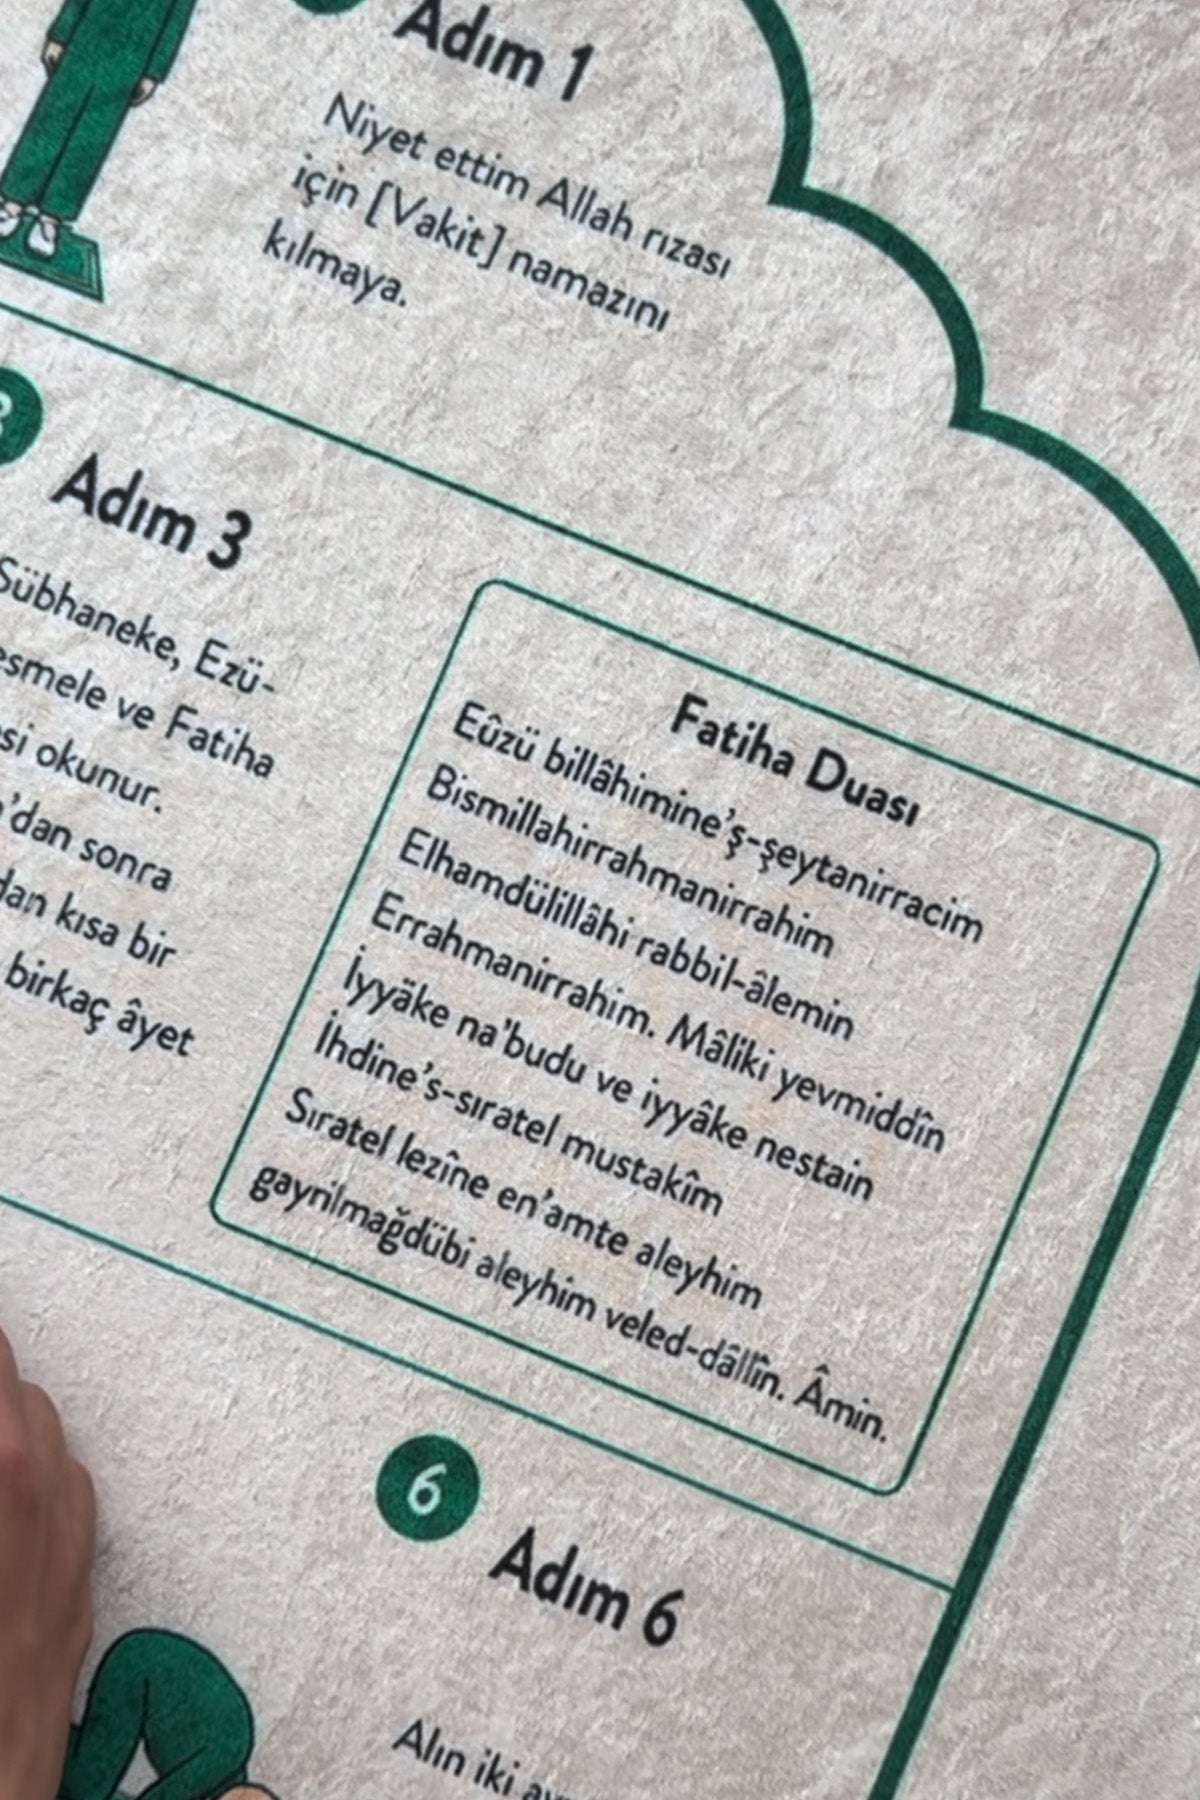 Adım 1
Niyet ettim Allah rızası
için [Vakit] namazını
kılmaya.
Adım 3
Sübhaneke, Ezü-
ve Fatiha
okunur.
sonra
kısa bir
birkaç âyet
Fatiha Duası
Eûzü billâhimine'ş-şeytanirracim
Bismillahirrahmanirrahim
Elhamdülillâhi rabbil-âlemin
Errahmanirrahim. Mâliki yevmiddîn
İyyâke na'budu ve iyyâke nestain
İhdine's-sıratel mustakîm
Sıratel lezîne en'amte aleyhim
gayrilmağdübi aleyhim veled-dâllîn. Âmin.
6
Adım 6
Alın iki